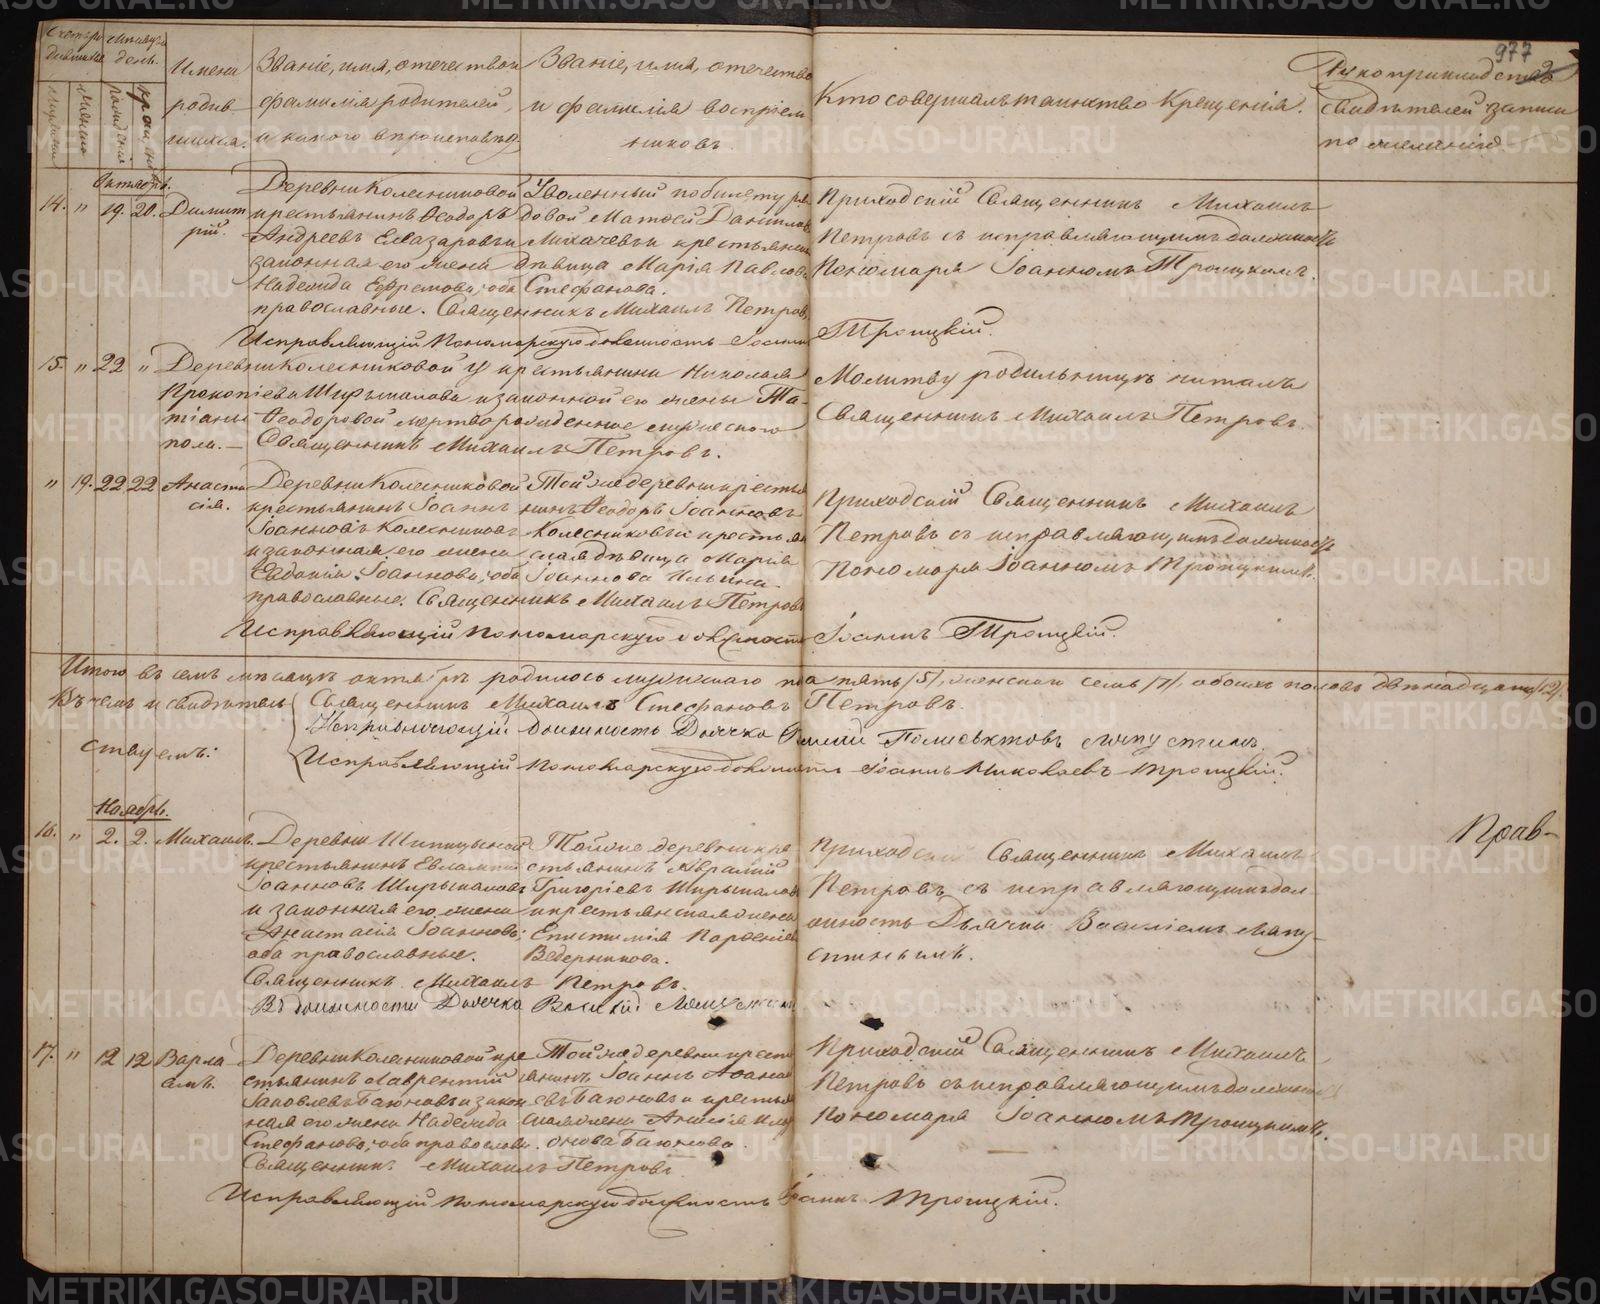 977
Счетъ родившихся
Мѣсяцъ и день.
Имена родившихся.
Званіе, имя, отечество и фамилія родителей, и какого вѣроисповѣд.
Званіе, имя, отечество и фамилія воспріемниковъ.
Кто совершалъ таинство Крещенія.
Рукоприкладство свидѣтелей записи по желанію
Мужеска
Женска
рожденія
крещенія
Октябрь.
14. " 19. 20. Димитрій.
Деревни Колесниковой
крестьянинъ Ѳеодоръ
Андреевъ Елазаровъ и
законная его жена
Надежда Ефремова; оба
православные. Священникъ Михаилъ Петровъ
Уволенный по билету ря-
довой Матѳей Данилов
Михачевъ и крестьянск
дѣвица Марія Павлова
Стефанова.
Приходскій Священникъ Михаилъ
Петровъ съ исправляющимъ должность
Пономаря Іоанномъ Троицкимъ.
Исправляющій Пономарскую должность Іоаннъ Троицкій.
15. " 22 " Деревни Колесниковой у крестьянина Николая
Прокопіева Шырыкалова и законной его жены Та-
тіаны Ѳеодоровой мертворожденное мужескаго
пола. — Священникъ Михаилъ Петровъ.
Молитву родильницѣ читалъ
Священникъ Михаилъ Петровъ.
" 19. 22 22 Анастасія.
Деревни Колесниковой
крестьянинъ Іоаннъ
Іоанновъ Колесниковъ
и законная его жена
Евдокія Іоаннова; оба
православные. Священникъ Михаилъ Петровъ
Той же деревни крестья
нинъ Ѳеодоръ Іоанновъ
Колесниковъ и крестьян
ская дѣвица Марія
Іоаннова Ильина.
Приходскій Священникъ Михаилъ
Петровъ съ исправляющимъ должность
Пономаря Іоанномъ Троицкимъ.
Исправляющій пономарскую должность Іоаннъ Троицкій.
Итого въ семъ мѣсяцѣ октябрѣ родилось мужескаго пола пять /5/, женскаго семь /7/, обоихъ половъ двѣнадцать /12/.
Въ чемъ и свидѣтель
ствуемъ:
Священникъ Михаилъ Стефановъ Петровъ.
Исправляющій должность Дьячка Василій Поліевктовъ Лапустинъ.
Исправляющій пономарскую должность Іоаннъ Николаевъ Троицкій.
Ноябрь.
16. " 2. 2. Михаилъ.
Деревни Шипицыной
крестьянинъ Евлампій
Іоанновъ Шырыкаловъ
и законная его жена
Анастасія Іоаннова;
оба православные.
Той же деревни кре
стьянинъ Аврамій
Григоріевъ Шырыкаловъ
и крестьянская жена
Епистимія Парѳеніева
Ведерникова.
Приходскій Священникъ Михаилъ
Петровъ съ исправляющимъ дол-
жность Дьячка Василіемъ Лапу-
стинымъ.
Прав-
Священникъ Михаилъ Петровъ.
Въ должности Дьячка Василій Лапустинъ
17. " 12 12 Варлаамъ.
Деревни Колесниковой кре
стьянинъ Лаврентій
Іаковлевъ Баюновъ и закон
ная его жена Надежда
Стефанова; оба православн.
Священникъ Михаилъ Петровъ
Той же деревни кресть
янинъ Іоаннъ Аѳанась
евъ Баюновъ и крестьян
ская жена Анисія Или
онова Баюнова.
Приходскій Священникъ Михаилъ
Петровъ съ исправляющимъ должность
Пономаря Іоанномъ Троицкимъ.
Исправляющій пономарскую должность Іоаннъ Троицкій.
METRIKI.GASO-URAL.RU